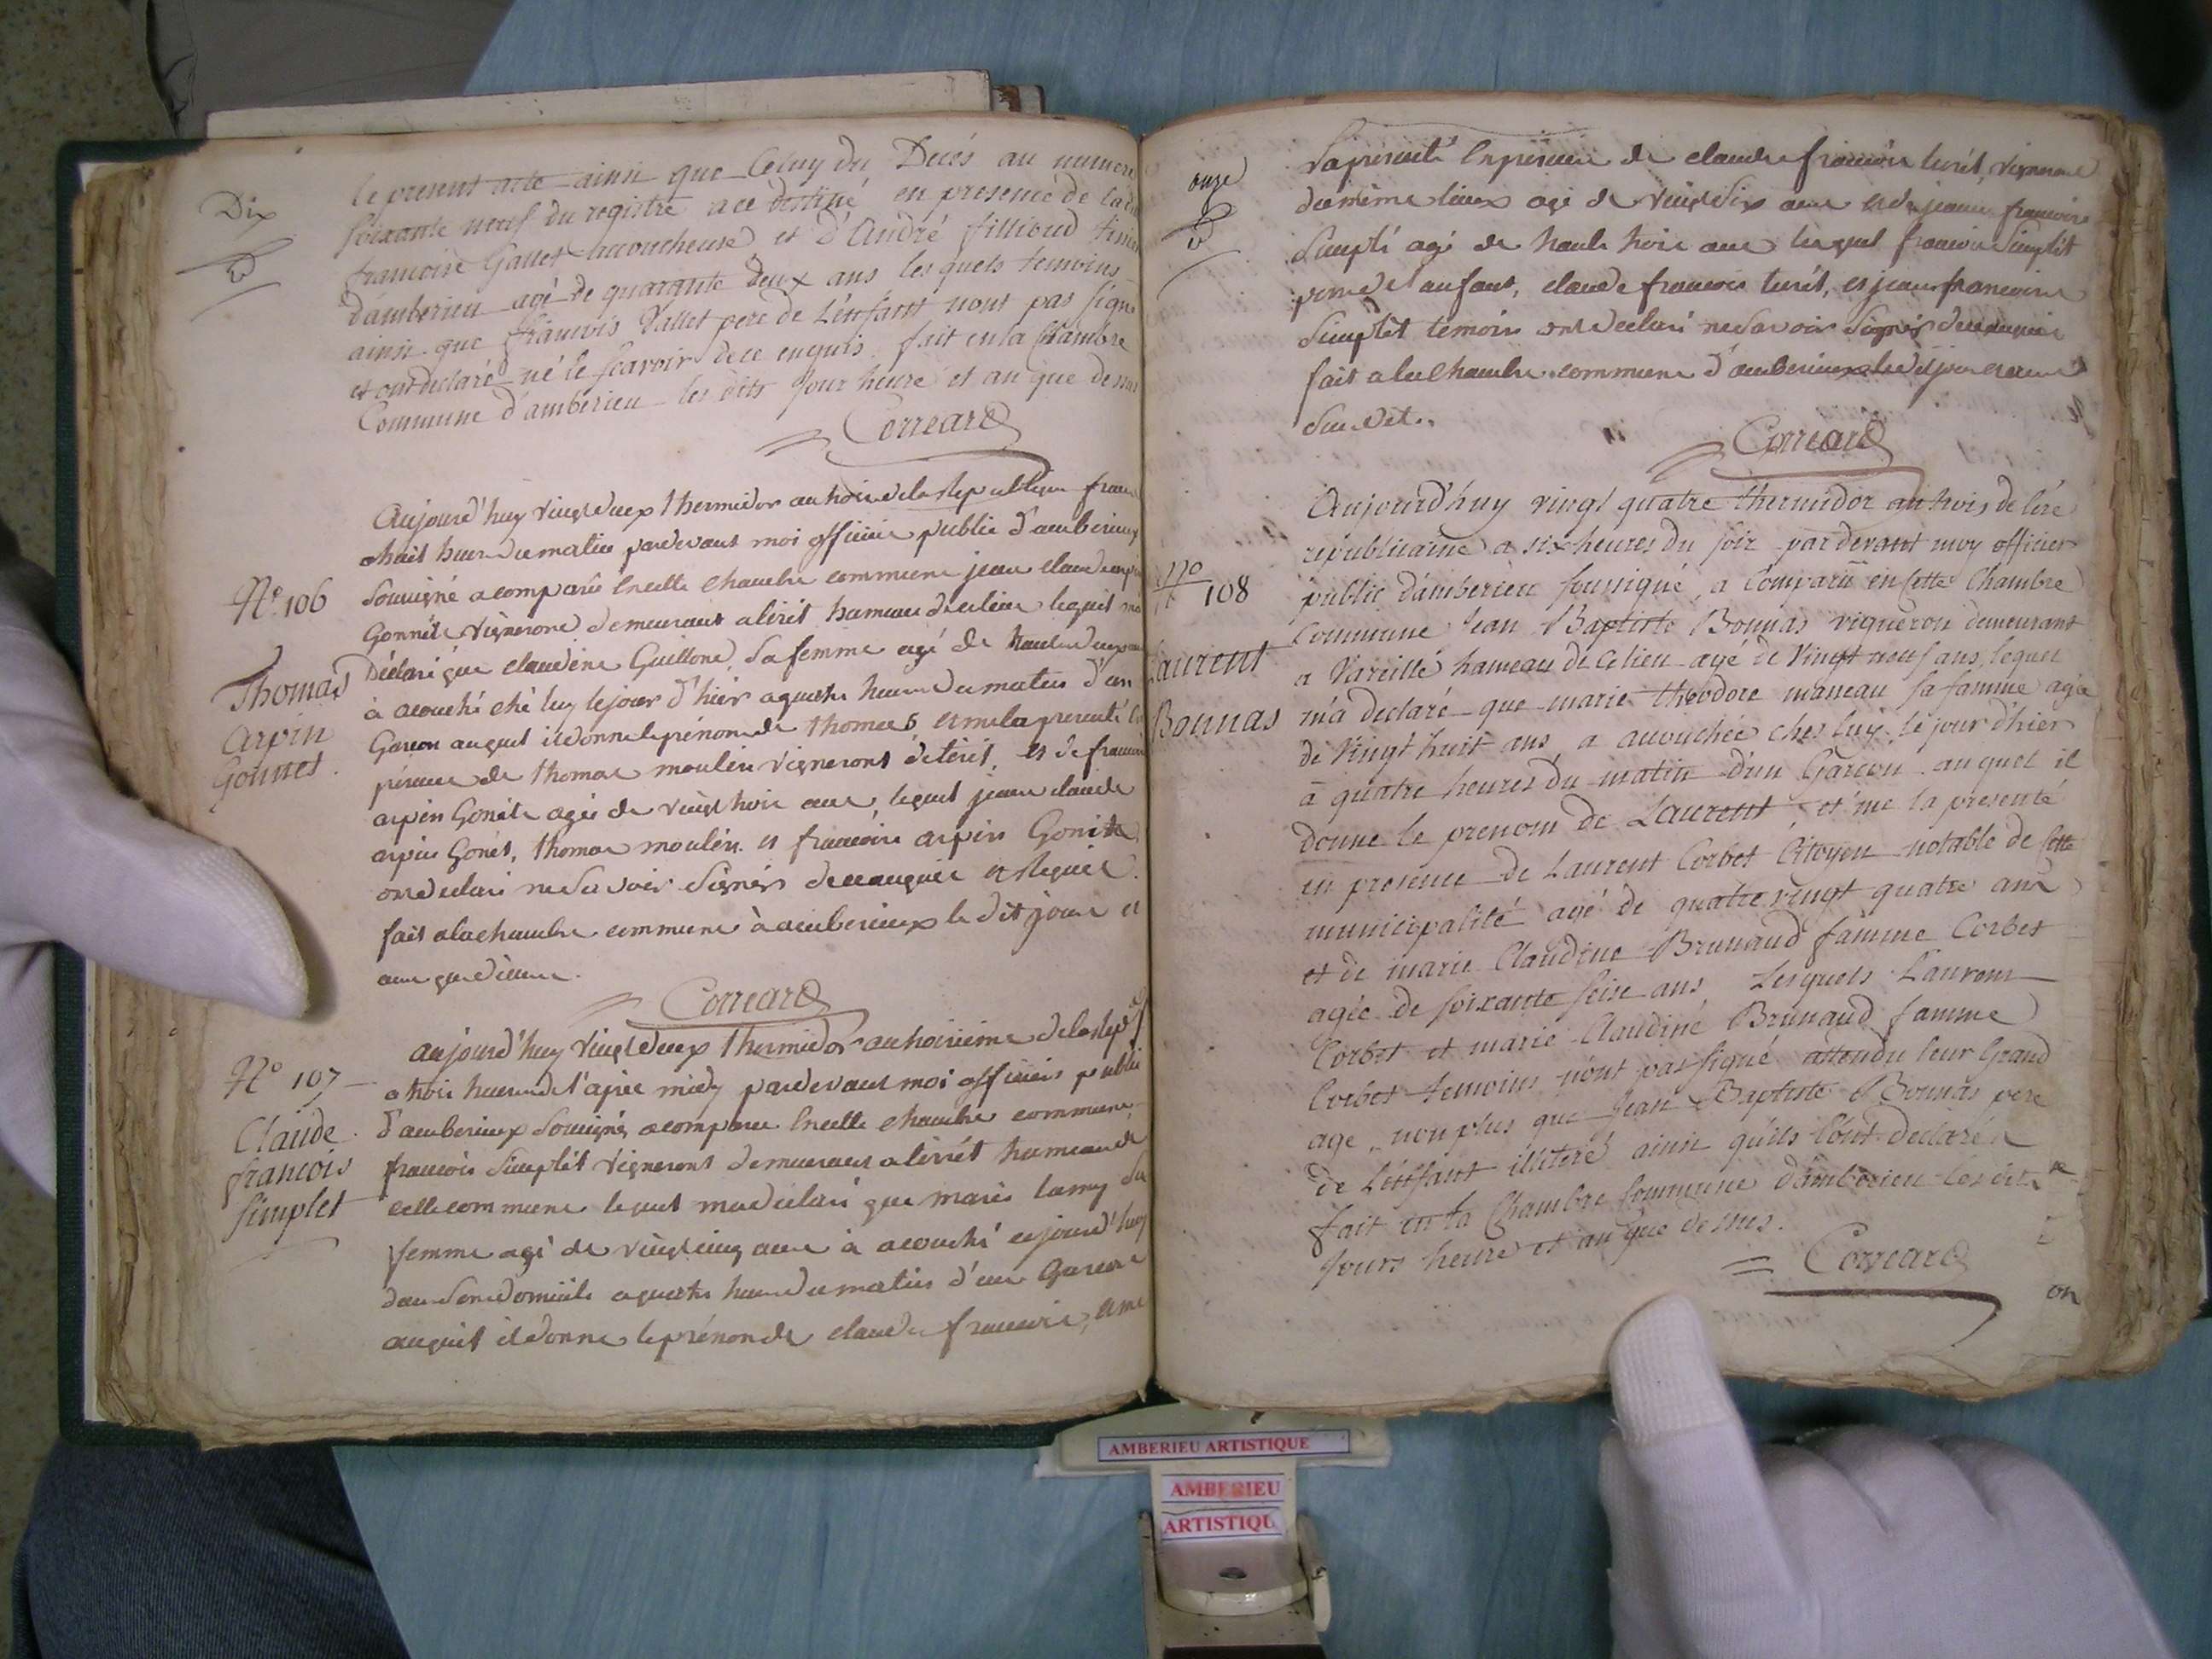 Dix
le present acte ainsi que Celuy du Decés au numero
soixante neuf du registre a ce destiné, en presence de
francoise Gallet accoucheuse et d'André fillioud
d'amberieu agé de quarante deux ans les quels temoins
ainsi que francois Vallet pere de L'enfant nont pas signé
et ont declaré né le scavoir de ce enquis. fait en la Chambre
Commune d'amberieu les dits Jour heure et an que dessus
Correard
Aujourd'huy vingt deux thermidor an trois de la Republique
a huit heure du matin pardevant moi officier public d'amberieux
Soussigné a comparu en cette chambre commune jean claude
Gonnet vigneron demeurant a tiret hameau de ce lieu lequel
Déclaré que claudine Guillond sa femme agé de trente deux
à acouché ché luy le jour d'hiér a quatre heure du matin d'un
Garcon auquel il donne le prénom de thomas, et me la presenté
présence de thomas moulin vigneront de tiret, et de
arpin Gonete agée de vingt trois ans lequel jean claude
arpin Gonet, thomas moulin et francoise arpin Gonete
on declaré ne savoir signér de ce enquis et requis.
fait a la chambre commune à amberieux le dit jour et
an que dessus.
Correard
N° 106
Thomas
Arpin
Gonnet.
aujourd'huy vingt deux thermidor an troisieme de la rep
a trois heure de l'aprée midy pardevant moi officiér public
d'amberieux Soussigné a comparu en cette chambre commune
francois Simplét vigneront demeurant a tirét hameau de
cette commune lequel ma declaré que marie lamy sa
femme agé de vingt cinq ans à acouché cejourd'huy
dans son domicile a quatre heure du matin d'un Garcon
auquel il donne le prénon de claude francois, et me
N° 107
Claude
francois
simplet
onze
la presenté en presence de claude francois tirét, vigneron
du même lieux agé de vingt six ans et de jeanne francoise
Simplé agé de trente trois ans lequel francois Simplét
pere de l'anfant, claude francois tirét, et jeanne francoise
Simplét temoins ont declaré ne savoir signér de ce enquis
fait a la chambre commune d'amberieux le dit jour et an
Susdit.
Correard
Aujourd'huy vingt quatre thermidor an trois de l'ere
republicaine a six heures du soir par devant moy officier
public d'amberieu soussigné, a comparu en Cette Chambre
Commune Jean Baptiste Bonnas vigneron demeurant
a Vareille hameau de Ce lieu agé de Vingt neuf ans, lequel
m'a declaré que marie theodore maneau sa famme agée
de Vingt huit ans a acouchée chés luy le jour d'hier
à quatre heures du matin d'un Garcon auquel il
donne le prenom de Laurent, et me la presenté
en presence de Laurent Corbet Citoyen notable de Cette
municipalité agé de quatre vingt quatre ans
et de marie Claudine Brunaud famme Corbet
agée de soixante seise ans Lesquels Laurent
Corbet et marie Claudine Brunaud famme
Corbet temoins n'ont pas signé attendu leur Grand
age, non plus que Jean Baptiste Bonnas pere
de L'enfant illiteré ainsi qu'ils l'ont declaré
fait en la Chambre Commune d'amberieu les dits
Jours heure et an que dessus.
Correard
on
N° 108
Laurent
Bonnas
AMBERIEU ARTISTIQUE
AMBERIEU
ARTISTIQU